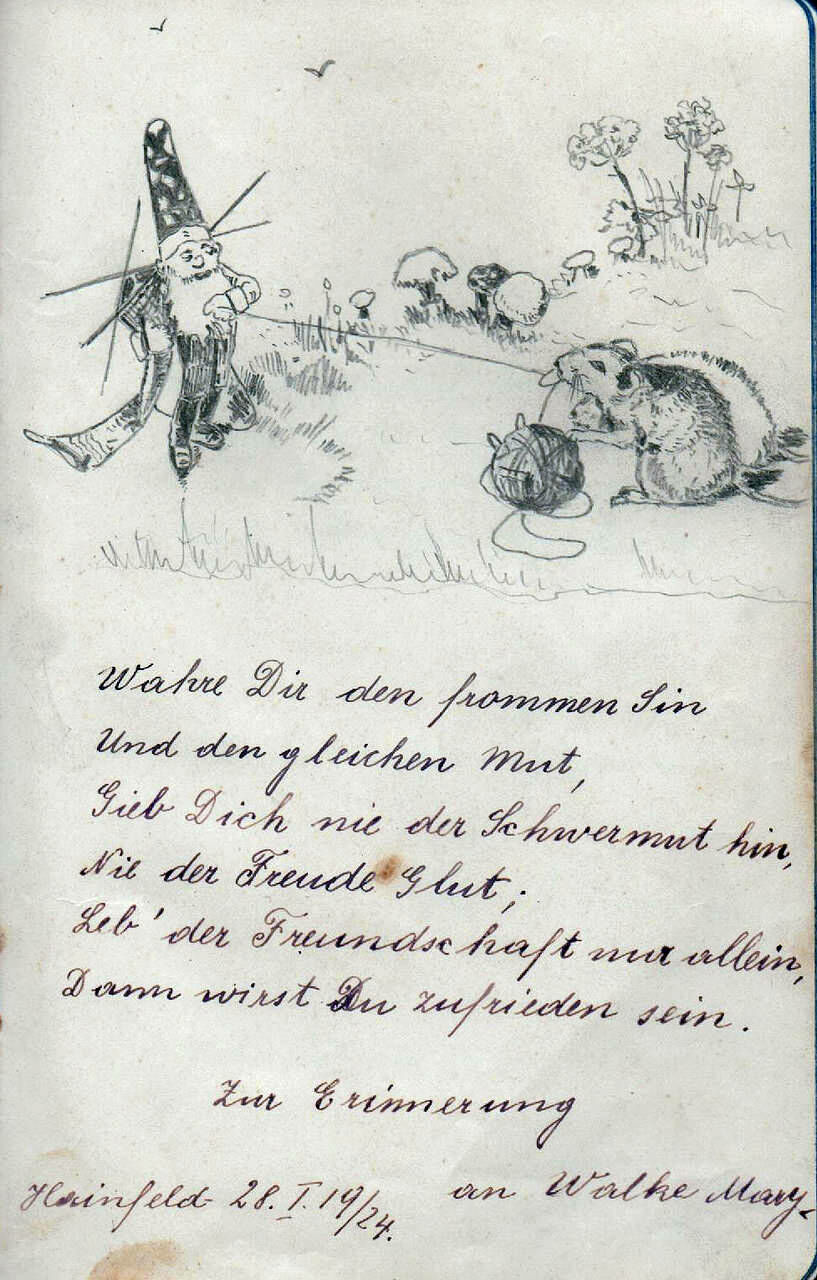 Wahre Dir den frommen Sin
Und den gleichen Mut,
Gieb Dich nie der Schwermut hin,
Nie der Freude Glut;
Leb' der Freundschaft nur allein,
Dann wirst Du zufrieden sein.
Zur Erinnerung
Hainfeld 28. I. 19/24. an Walke Mary.